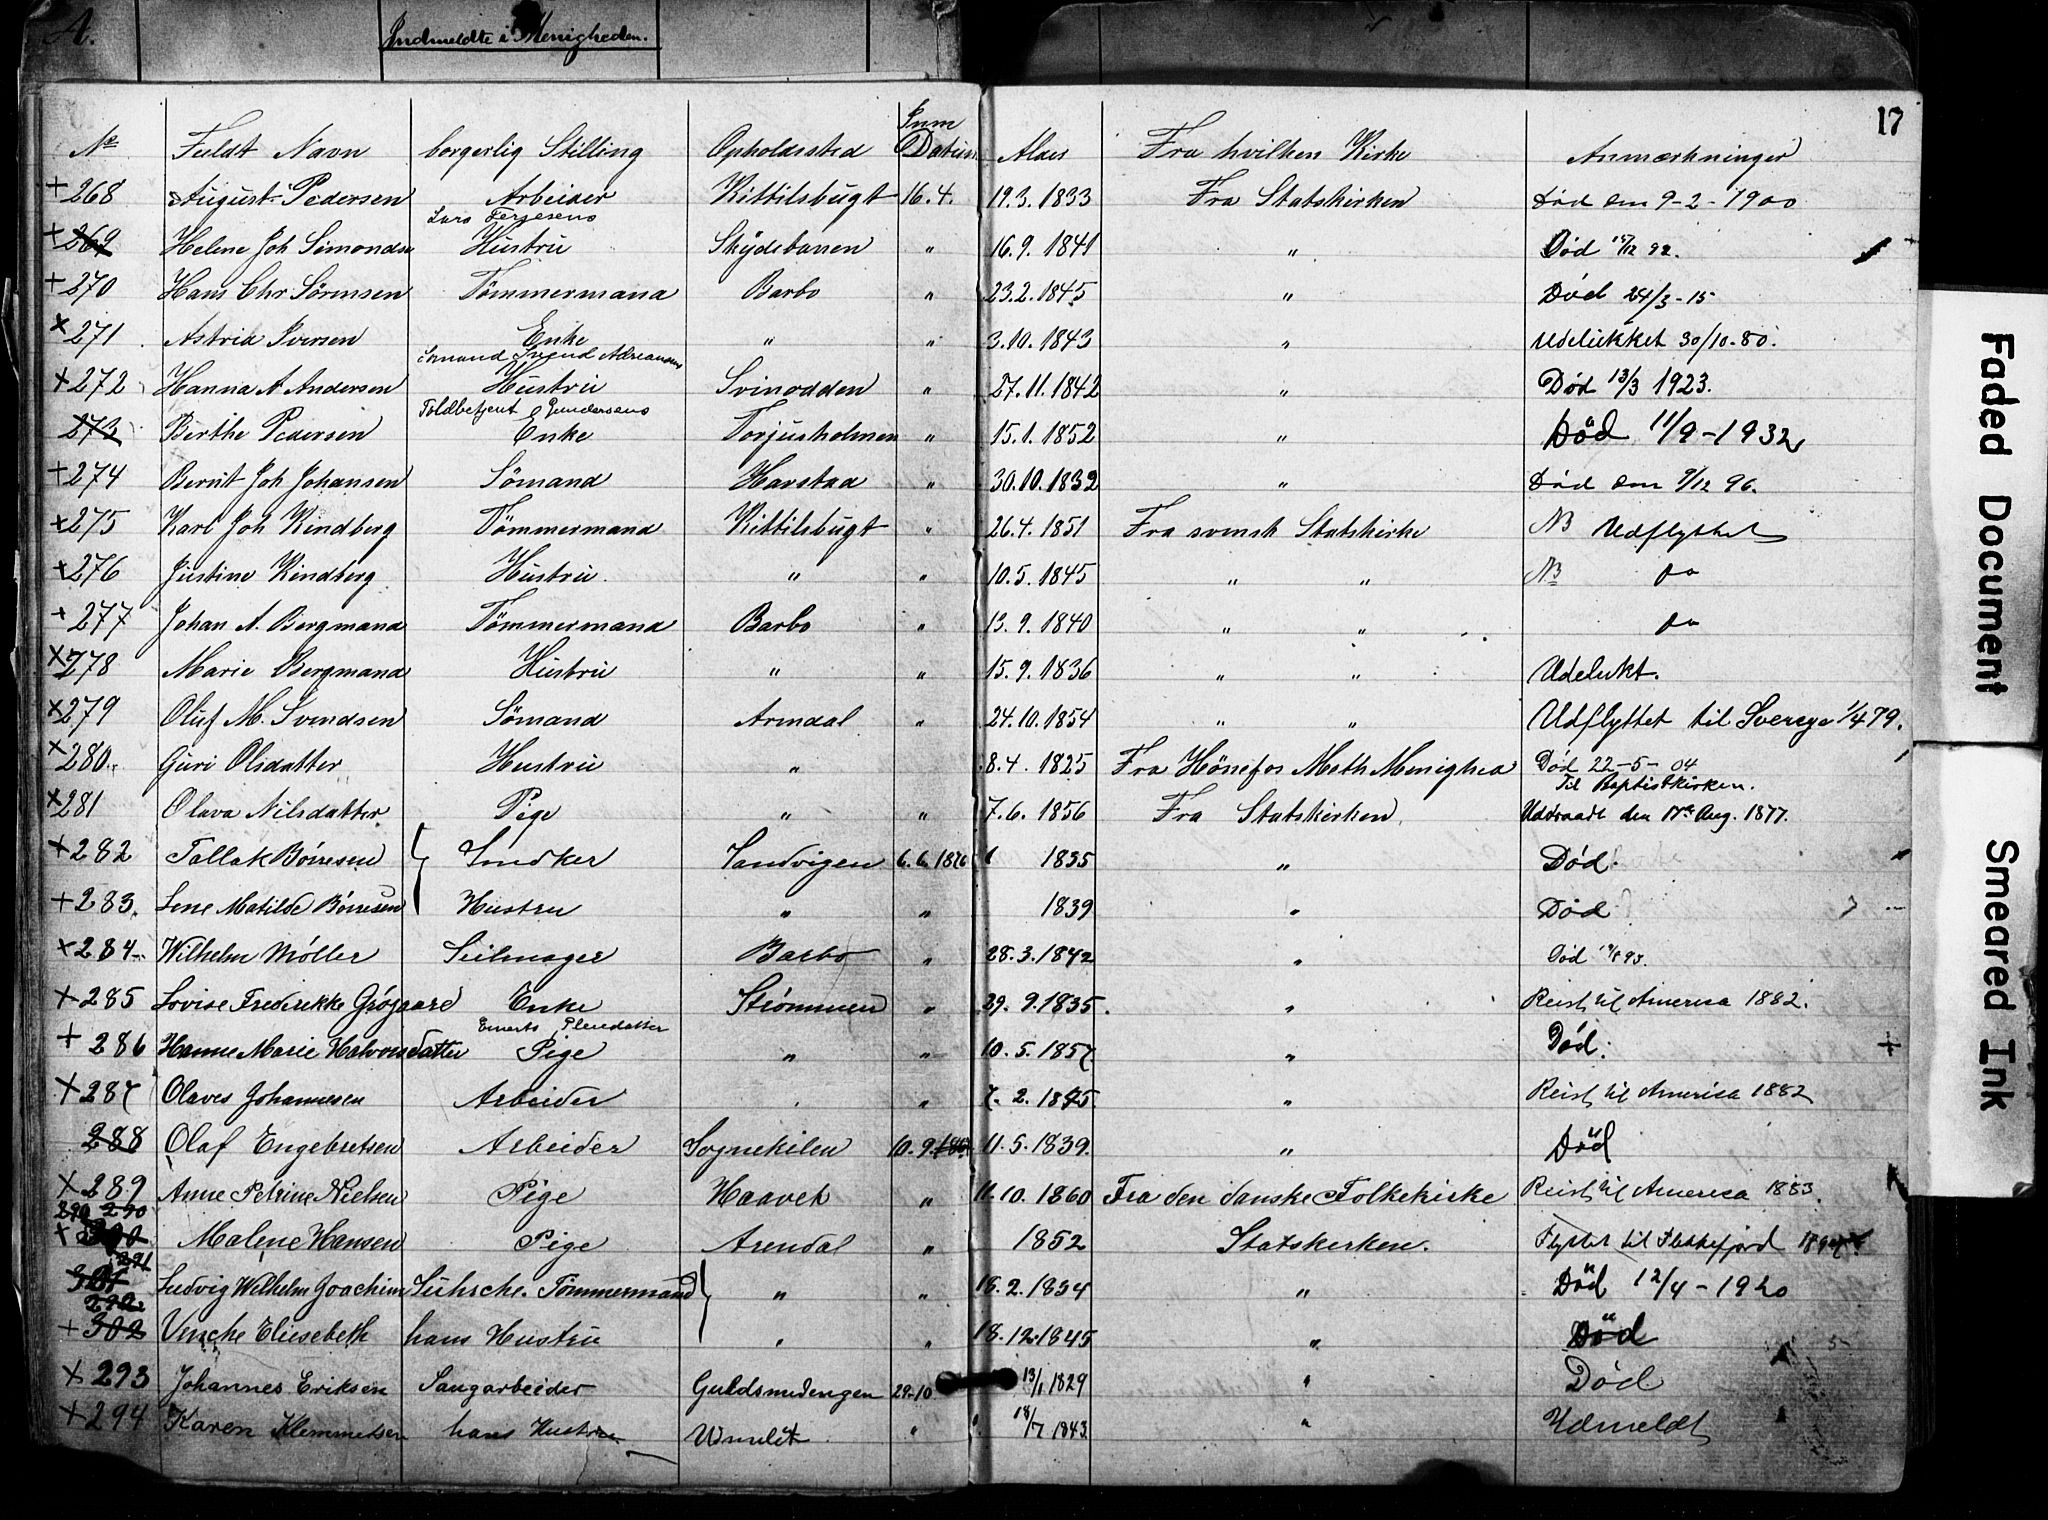 A. Indmeldte i Menigheden.
17
No Fuldt Navn borgerlig Stilling Opholdssted Inm Datum Alder Fra hvilken Kirke Anmærkninger
+ 268 August Pedersen Arbeider Kittilsbugt 16.4. 19.3.1833 Fra Statskirken Död den 9-2-1900
Lars Terjesens
+ 269 Helene Joh Simondsn Hustru Skydebanen " 16.9.1841 " Död 15/12 92.
+ 270 Hans Chr Sörensen Tömmermand Barbo " 23.2.1845 " Död 24/3-15
x 271 Astrid Iversen Enke " " 3.10.1843 " Udelukket 30/10-80.
Sömand Svend Adreansens
+ 272 Hanna A Andersen Hustru Svinodden " 27.11.1842 " Död 13/3 1923.
Toldbetjent Gundersens
273 Berthe Pedersen Enke Torjusholmen " 15.1.1852 " Död 11/9-1932
+ 274 Bernt Joh Johansen Sömand Harstad " 30.10.1832 " Död den 9/12 96.
x 275 Karl Joh Kindberg Tömmermand Kittilsbugt " 26.4.1851 Fra svensk Statskirke NB Udflyttet
x 276 Justine Kindberg Hustru. " " 10.5.1845 " " NB do
+ 277 Johan A. Bergmand Tömmermand Barbo " 13.9.1840 " " do
x 278 Marie Bergmand Hustru " " 15.9.1836 " " Udelukt.
x 279 Oluf M. Svendsen Sömand Arendal " 24.10.1854 " " Udflyttet til Sverge 1/4 79.
x 280 Guri Olsdatter Hustru " 8.4.1825 Fra Hönefos Meth Menighed Död 22-5-04
Til Baptistkirken.
x 281 Olava Nilsdatter Pige " " 7.6.1856 Fra Statskirken Udtraadt den 17de Aug. 1877.
+ 282 Tallak Börresen Snedker Sandvigen 6.6.1876 1835 " Död.
+ 283. Lene Matilde Börresen Hustru " " 1839 " Död
x 284 Wilhelm Møller Seilmager Barbo " 28.3.1842 " Død
+ 285 Lovise Frederikke Grøgaard Enke Strömmen " 29.9.1835. " Reist til America 1882.
+ 286 Hanne Marie Halvorsdatter Pige " " 10.5.1857 " Död.
+ 287 Olaves Johannesen Arbeider " " 7.2.1845 " Reist til America 1882
288 Olaf Engebretsen Arbeider Sognekilen 10.9. 11.5.1839. " Död
x 289 Anne Petrine Nielsen Pige Haavet " 11.10.1860 Fra den danske Folkekirke Reist til America 1883.
290 290
+ 300 Malene Hansen Pige Arendal " 1852 Statskerken. Flyttet til Flekkefjord
291
301 Ludvig Wilhelm Joachim Sühsche. Tömmermand " " 18.2.1834 " Död 12/4-1920
292
+ 302 Vincke Eliesebeth hans Hustru " " 18.12.1845 " Död
x 293 Johannes Eriksen Saugarbeider Guldsmedengen 29-10 13/1 1829 " Död
+ 294 Karen Klemmetsen hans Hustru " 18/7 1843 " Udmeldt
Faded Document
Smeared Ink